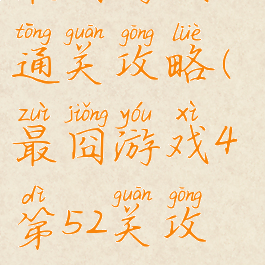 tōng guān gōng lüè
通关攻略(
zuì jiǒng yóu xì
最囧游戏4
dì guān gōng
第52关攻